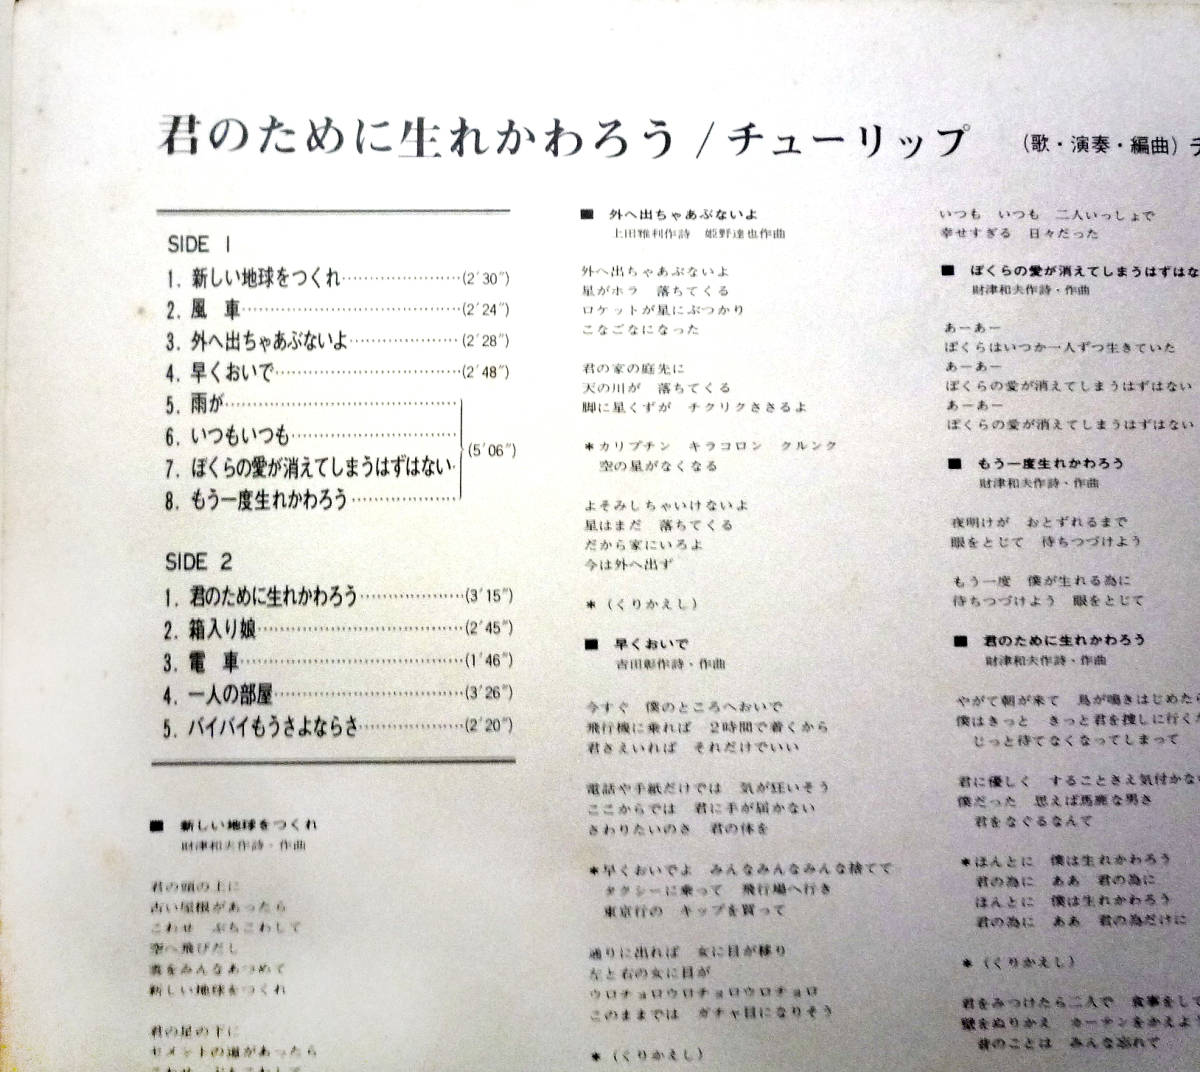 君のために生れかわろう / チューリップ (歌・演奏・編曲)
SIDE 1
1. 新しい地球をつくれ (2′30″)
2. 風 車 (2′24″)
3. 外へ出ちゃあぶないよ (2′28″)
4. 早くおいで (2′48″)
5. 雨が
6. いつもいつも
7. ぼくらの愛が消えてしまうはずはない
8. もう一度生れかわろう
(5′06″)
SIDE 2
1. 君のために生れかわろう (3′15″)
2. 箱入り娘 (2′45″)
3. 電 車 (1′46″)
4. 一人の部屋 (3′26″)
5. バイバイもうさよならさ (2′20″)
■ 新しい地球をつくれ
財津和夫作詩・作曲
君の頭の上に
古い屋根があったら
こわせ ぶちこわして
空へ飛びだし
雲をみんなあつめて
新しい地球をつくれ
君の足の下に
セメントの道があったら
■ 外へ出ちゃあぶないよ
上田雅利作詩 姫野達也作曲
外へ出ちゃあぶないよ
星がホラ 落ちてくる
ロケットが星にぶつかり
こなごなになった
君の家の庭先に
天の川が 落ちてくる
脚に星くずが チクリクささるよ
*カリプチン キラコロン クルンク
空の星がなくなる
よそみしちゃいけないよ
星はまだ 落ちてくる
だから家にいろよ
今は外へ出ず
*(くりかえし)
■ 早くおいで
吉田彰作詩・作曲
今すぐ 僕のところへおいで
飛行機に乗れば 2時間で着くから
君さえいれば それだけでいい
電話や手紙だけでは 気が狂いそう
ここからでは 君に手が届かない
さわりたいのさ 君の体を
*早くおいでよ みんなみんなみんな捨てて
タクシーに乗って 飛行場へ行き
東京行の キップを買って
通りに出れば 女に目が移り
左と右の女に目が
ウロチョロウロチョロウロチョロ
このままでは ガチャ目になりそう
*(くりかえし)
いつも いつも 二人いっしょで
幸せすぎる 日々だった
■ ぼくらの愛が消えてしまうはずはな
財津和夫作詩・作曲
あーあー
ぼくらはいつか一人ずつ生きていた
あーあー
ぼくらの愛が消えてしまうはずはない
あーあー
ぼくらの愛が消えてしまうはずはない
■ もう一度生れかわろう
財津和夫作詩・作曲
夜明けが おとずれるまで
眼をとじて 待ちつづけよう
もう一度 僕が生れる為に
待ちつづけよう 眼をとじて
■ 君のために生れかわろう
財津和夫作詩・作曲
やがて朝が来て 鳥が鳴きはじめたら
僕はきっと きっと君を捜しに行くだ
じっと待てなくなってしまって
君に優しく することさえ気付かな
僕だった 思えば馬鹿な男さ
君をなぐるなんて
*ほんとに 僕は生れかわろう
君の為に ああ 君の為に
ほんとに 僕は生れかわろう
君の為に ああ 君の為だけに
*(くりかえし)
君をみつけたら二人で 食事をして
壁をぬりかえ カーテンをかえよう
昔のことは みんな忘れて